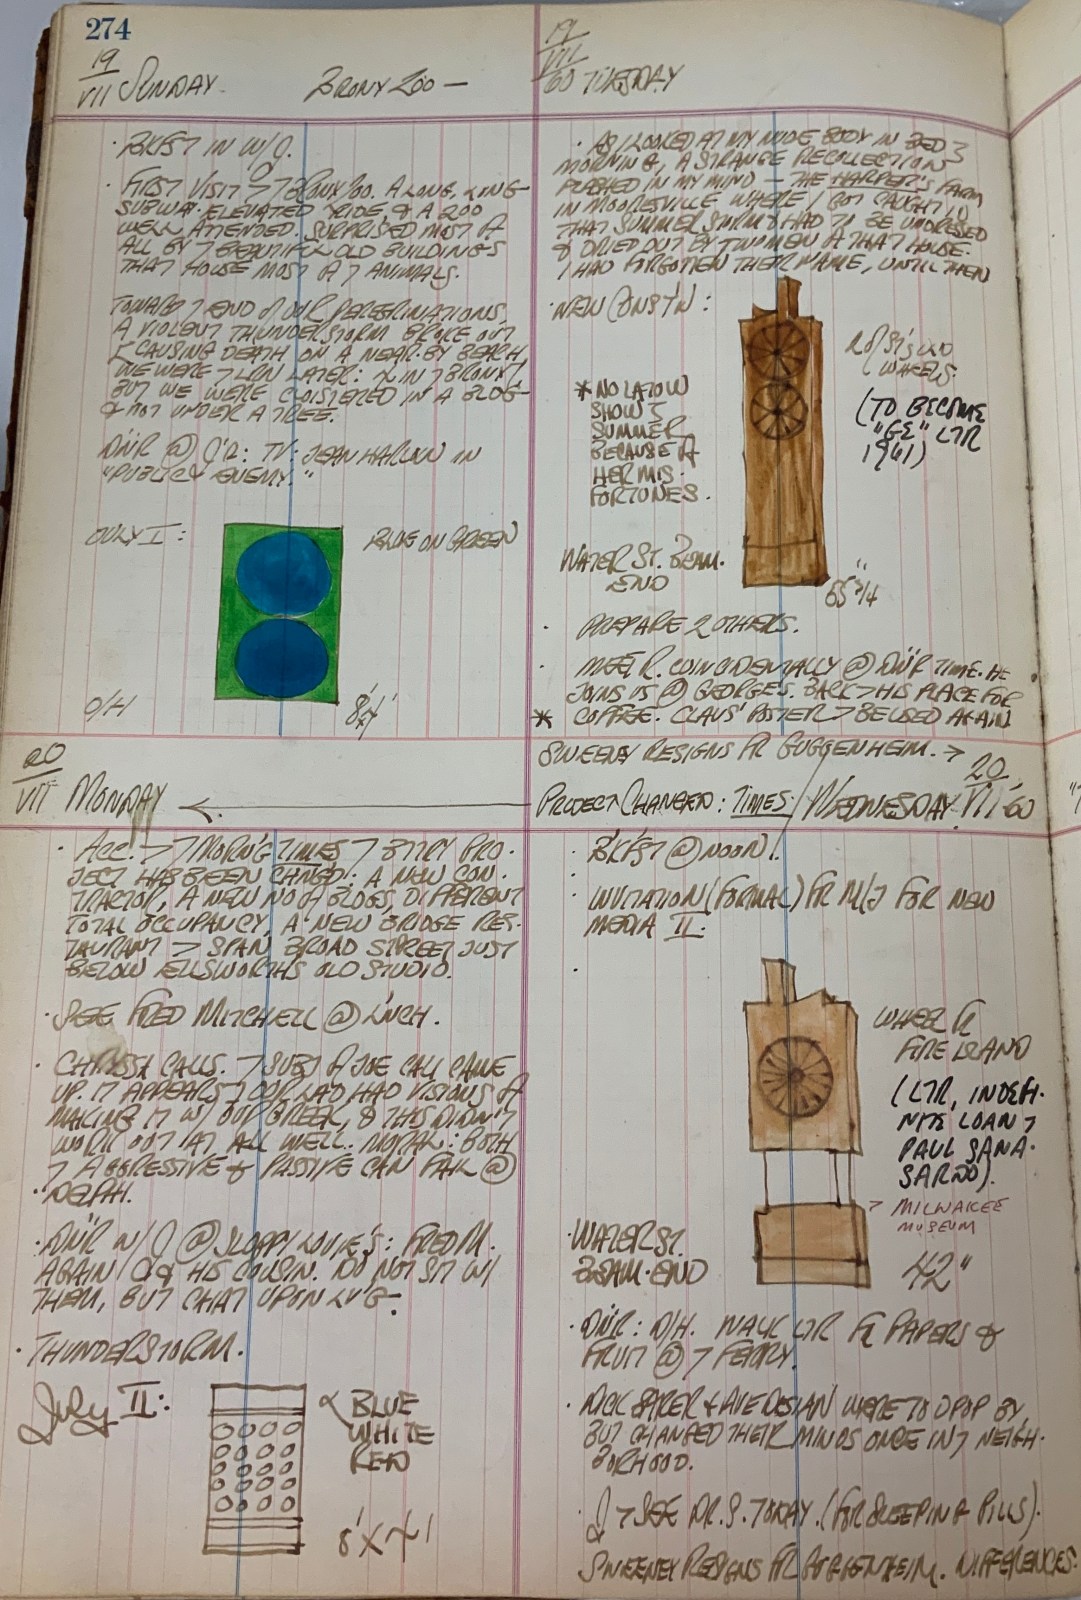 274
19
VII SUNDAY. BRONX ZOO —
· BKFST IN W/J.
· FIRST VISIT > 7 BRONX ZOO. A LONG, LONG
SUBWAY-ELEVATED RIDE, & A ZOO
WELL ATTENDED. SURPRISED MOST OF
ALL BY 7 BEAUTIFUL OLD BUILDINGS
THAT HOUSE MOST OF 7 ANIMALS.
TOWARD 7 END OF OUR PEREGRINATIONS,
A VIOLENT THUNDERSTORM BROKE OUT
CAUSING DEATH ON A NEAR-BY BEACH,
WE WERE > LRN LATER: & IN 7 BRONX,
BUT WE WERE CLOISTERED IN A BLDG
& NOT UNDER A TREE.
DN'R @ J'R: TV: JEAN HARLOW IN
"PUBLIC ENEMY."
JULY I: BLUE ON GREEN
O/H
20
VII MONDAY
· ACC. > 7 MORN'G TIMES 7 BTRY PRO-
JECT HAS BEEN CHANGED. A NEW CON-
TRACTOR, A NEW NO OF BLDGS, DIFFERENT
TOTAL OCCUPANCY, A NEW BRIDGE RES-
TAURANT > SPAN BROAD STREET JUST
BELOW ELLSWORTH'S OLD STUDIO.
· SEE FRED MITCHELL @ L'NCH.
· CHRYSSA CALLS. 7 SUBJ OF JOE CALL CAME
UP. IT APPEARS 7 OUR LAD HAD VISIONS OF
MAKING IT W/ OUR GREEK, & THIS DIDN'T
WORK OUT AT ALL WELL. MORAL: BOTH
7 AGGRESSIVE & PASSIVE CAN FAIL @
DELPHI.
· DN'R W/ J @ SLOPPY LOUIE'S: FRED M.
AGAIN & HIS COUSIN. DO NOT SIT W/
THEM, BUT CHAT UPON LV'G.
· THUNDERSTORM.
July II: BLUE
WHITE
RED
8' X
19
VII
60 TUESDAY
· AS I LOOKED AT MY NUDE BODY IN BED
MORNING, A STRANGE RECOLLECTION
FLASHED IN MY MIND — THE HARPER'S FARM
IN MOORESVILLE WHERE I GOT CAUGHT IN
THAT SUMMER STORM & HAD TO BE UNDRESSED
& DRIED OUT BY TWO MEN AT THAT HOUSE.
I HAD FORGOTTEN THEIR NAME, UNTIL THEN
· NEW CONST'N:
WHEELS.
(TO BECOME
"GE" LTR
1961)
* NO LATOW
SHOW
SUMMER
BECAUSE OF
HER MIS-
FORTUNES.
WATER ST. BEAM-
END
65 3/4"
· PREPARE 2 OTHERS.
· MEET R. COINCIDENTALLY @ DN'R TIME. HE
JOINS US @ GEORGES. BACK > HIS PLACE FOR
* COFFEE. CLAUS' POSTER > BE USED AGAIN
SWEENEY RESIGNS FR GUGGENHEIM. →
PROJECT CHANGED: TIMES / WEDNESDAY 20 VII '60
· BKFST @ NOON!
· INVITATION (FORMAL) FR M/J FOR NEW
MEDIA II.
WHEEL FR
FIRE ISLAND
(LTR, INDEFI-
NITE LOAN >
PAUL SANA-
SARDO).
> MILWAKEE
MUSEUM
WATER ST.
BEAM-END
42"
· DN'R: O/H. WALK LTR FR PAPERS &
FRUIT @ 7 FERRY.
· & AVEDISIAN WERE TO DROP BY,
BUT CHANGED THEIR MINDS ONCE IN 7 NEIGH-
BORHOOD.
· J > SEE DR. S. TODAY. (FOR SLEEPING PILLS).
SWEENEY RESIGNS FR GUGGENHEIM. DIFFERENCES.